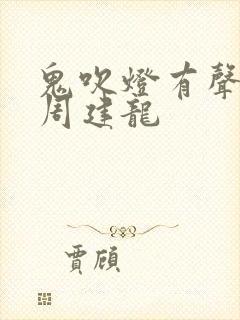 鬼吹燈有聲
周建龍
賈頎